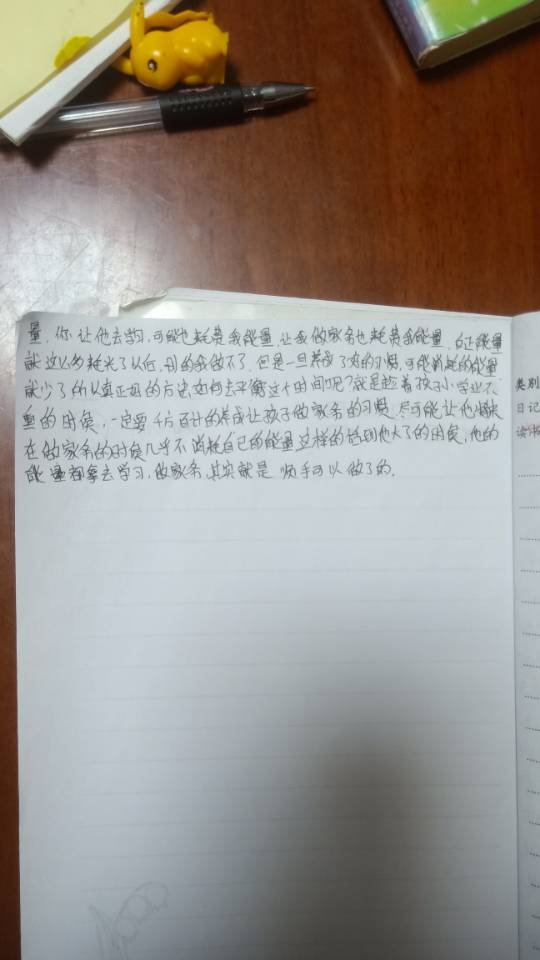 量,你让他去学习,可能也耗费我能量,让我做家务也耗费我能量,
就这么多耗光了以后,别的我做不了.但是一旦养成了好的习惯,可能消耗的能量
就少了所以真正好的方法,如何去平衡这个时间呢?就是趁着孩子小,学业不
重的时候,一定要千方百计的养成让孩子做家务的习惯,尽可能让他将来
在做家务的时候几乎不消耗自己的能量,这样的话到他大了的时候,他的
能量都拿去学习,做家务,其实就是顺手可以做了的.
类别
日记